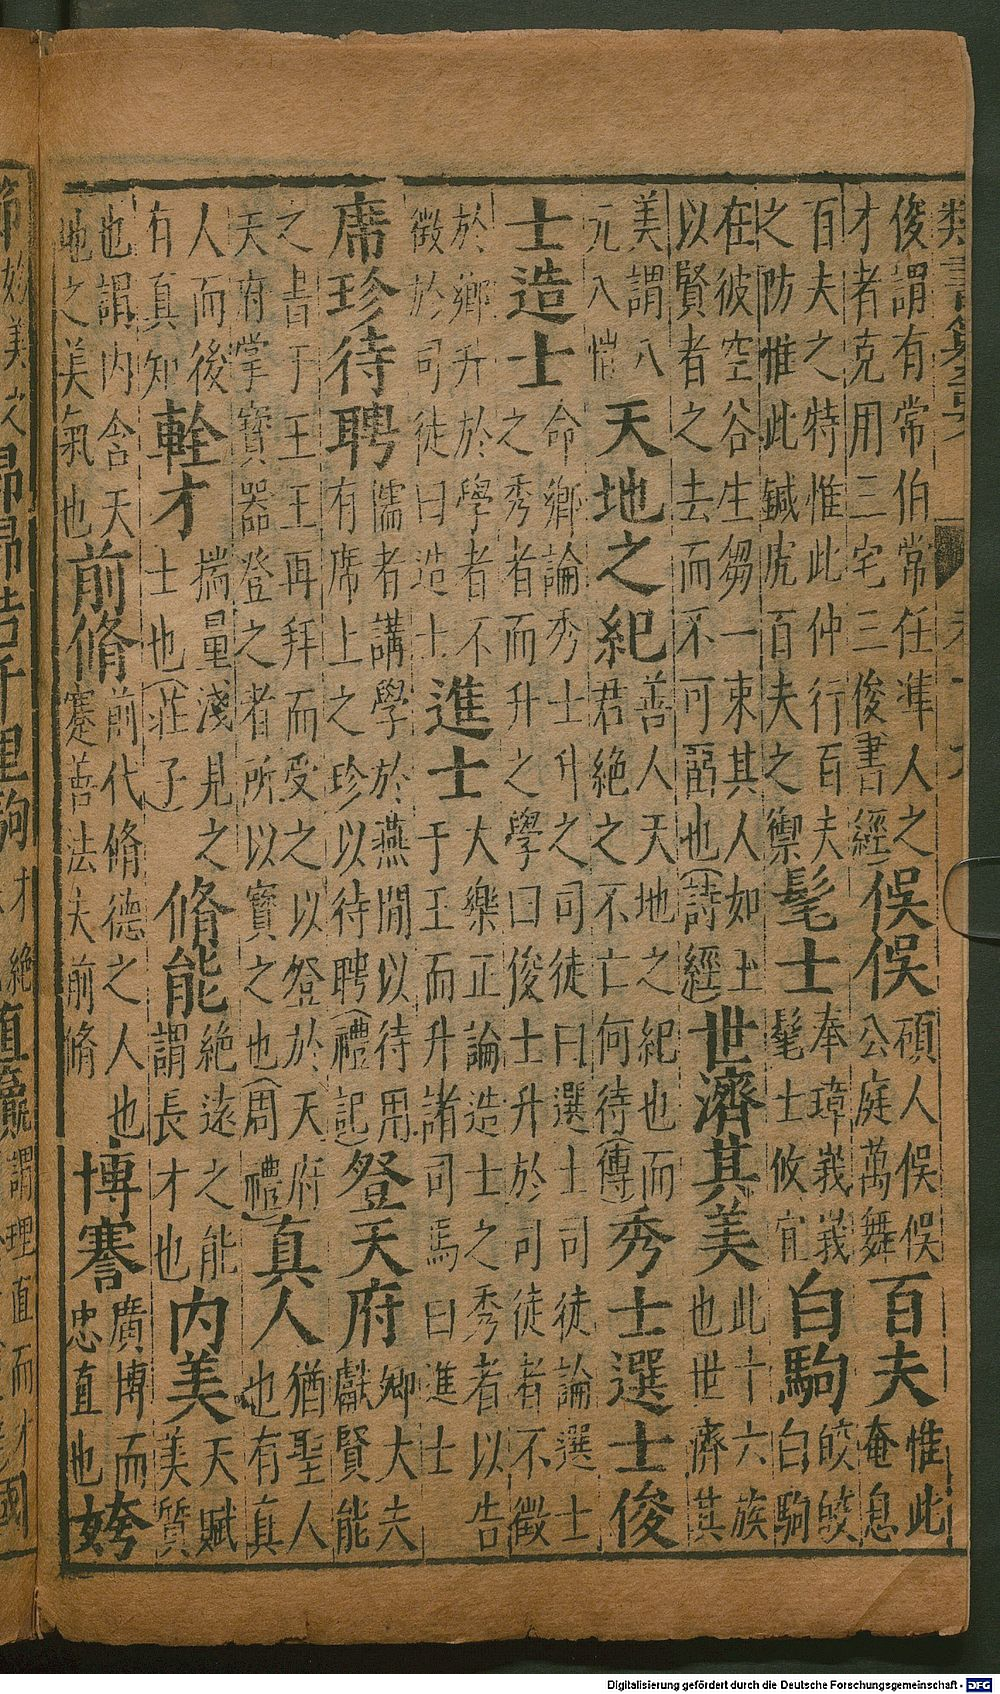 類書纂要
俊謂有常伯常任準人之才者克用三宅三俊(書經)俁俁碩人俁俁公庭萬舞百夫惟此奄息
百夫之特惟此仲行百夫之防惟此鍼虎百夫之禦髦士奉璋峩峩髦士攸宜白駒皎皎白駒
在彼空谷生芻一束其人如玉以賢者之去而不可留也(詩經)世濟其美此十六族也世濟其
美謂八元八愷天地之紀善人天地之紀也而君絕之不亡何待(傳)秀士選士俊
士造士命鄉論秀士升之司徒曰選士司徒論選士之秀者而升之學曰俊士升於司徒者不徵
於鄉升於學者不徵於司徒曰造士進士大樂正論造士之秀者以告于王而升諸司馬曰進士
席珍待聘儒者講學於燕閒以待用有席上之珍以待聘(禮記)登天府卿大夫獻賢能
之書于王王再拜而受之以登於天府天府掌寶器登之者所以寶之也(周禮)真人猶聖人也有真
人而後有真知輇才揣量淺見之士也(莊子)脩能絕遠之能謂長才也內美天賦美質
也謂內含天地之美氣也前脩前代脩德之人也蹇吾法夫前脩博謇廣博而忠直也姱
Digitalisierung gefördert durch die Deutsche Forschungsgemeinschaft - DFG